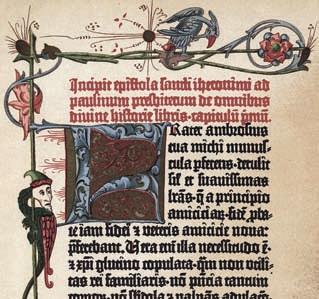 Incipit epistola sancti iheronimi ad
paulinum presbiterum de omnibus
divine historie libris. capitulū pʳmū.
Frater ambrosius
tua michi munus-
cula pferens. detulit
sil' et suavissimas
lr̄as. q̄ a principio
amiciciaꝝ. fidē pba-
te iam fidei et veteris amicicie nova:
pferebant. Vera eni illa necessitudo ē.
⁊ xp̄i glutino copulata: qm̄ non utili-
tas rei familiaris. nō p̄ntia tantum
corpoꝝ. nō subdola et palpans adulac̄o.